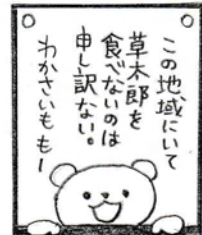 この地域にいて
草木郎を
食べないのは
申し訳ない。
わかさいももー